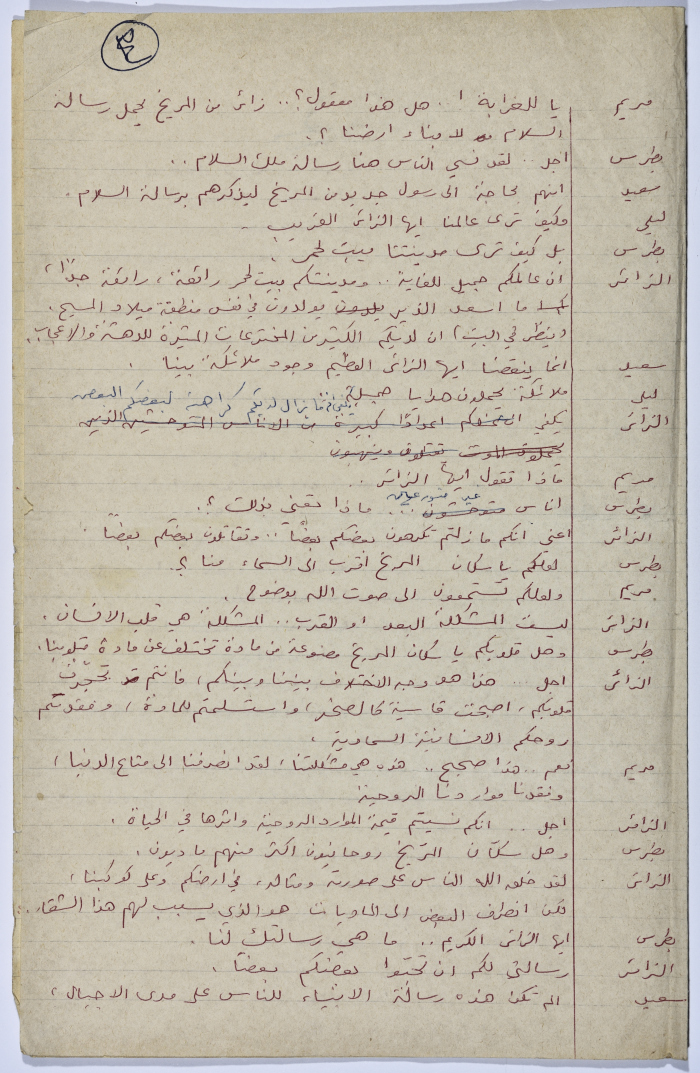 ٣٤
مريم يا للغرابة ! .. هل هذا معقول ؟ .. زائر من المريخ يحمل رسالة
السلام لابناء ارضنا ؟.
بطرس اجل .. لقد نسي الناس هنا رسالة ملك السلام ..
سعيد انهم بحاجة الى رسول جديد من المريخ ليذكرهم برسالة السلام .
ليلى وكيف ترى عالمنا ايها الزائر الغريب .
بطرس بل كيف ترى مدينتنا بيت لحم ؟
الزائر ان عالمكم جميل للغاية .. ومدينتكم بيت لحم رائعة ، رائعة جدًا ،
ما اسعد الذين يولدون في نفس منطقة ميلاد المسيح .
( ينظر في البيت ) ان لديكم الكثير من المخترعات المثيرة للدهشة والاعجاب .
سعيد انما ينقصنا ايها الزائر العظيم وجود ملائكة بيننا .
ليلى ملائكة يحملون هدايا جميلة
الزائر يكفي ما يزال لديكم كراهية لبعضكم البعض
يكفي ان عندكم اعدادًا كبيرة من الاناس المتوحشين الذين
يحملون الموت يقتلون وينهبون
مريم ماذا تقول ايها الزائر ..
بطرس اناس متوحشون غير ... ماذا تعني بذلك ؟.
الزائر اعني انكم ما زلتم تكرهون بعضكم بعضًا .. وتقاتلون بعضكم بعضًا .
بطرس لعلكم يا سكان المريخ اقرب الى السماء منا ؟.
مريم ولعلكم تستمعون الى صوت الله بوضوح .
الزائر ليست المشكلة البعد او القرب .. المشكلة هي قلب الانسان .
بطرس وهل قلوبكم يا سكان المريخ مصنوعة من مادة تختلف عن مادة قلوبنا .
الزائر اجل ... هذا هو وجه الاختلاف بيننا وبينكم ، فانتم قد تحجّرت
قلوبكم ، اصبحت قاسية كالصخر ، واستسلمتم للمادة ، وفقدتم
روحكم الانسانية السماوية .
مريم نعم .. هذا صحيح .. هذه هي مشكلتنا ، لقد انصرفنا الى متاع الدنيا ،
وفقدنا مواردنا الروحية
الزائر اجل .. انكم نسيتم قيمة الموارد الروحية واثرها في الحياة .
بطرس وهل سكّان المريخ روحانيون اكثر منهم ماديون .
الزائر لقد خلق الله الناس على صورته ومثاله ، في ارضكم وعلى كوكبنا ،
لكن انصراف البعض الى الماديات هو الذي يسبب لهم هذا الشقاء .
بطرس ايها الزائر الكريم .. ما هي رسالتك لنا .
الزائر رسالتي لكم ان تحبّوا بعضكم بعضًا .
سعيد الم تكن هذه رسالة الانبياء للناس على مدى الاجيال ،